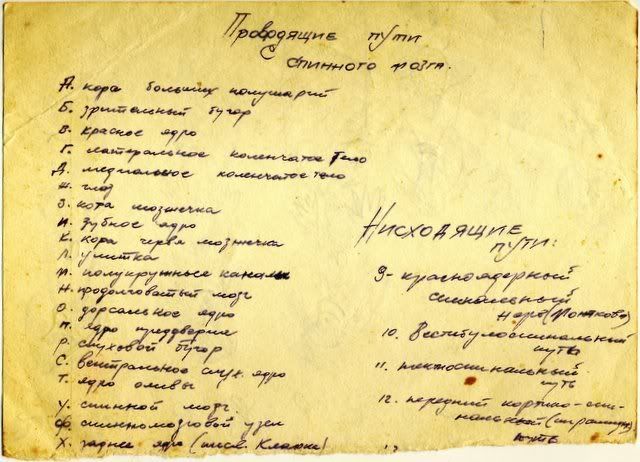 Проводящие пути
спинного мозга.
А. кора больших полушарий
Б. зрительный бугор
В. красное ядро
Г. латеральное коленчатое тело
Д. медиальное коленчатое тело
Ж. глаз
З. кора мозжечка
И. зубное ядро
К. кора червя мозжечка
Л. улитка
М. полукружные каналы
Н. продолговатый мозг
О. дорсальное ядро
П. ядро преддверия
Р. слуховой бугор
С. вентральное слух. ядро
Т. ядро оливы
У. спинной мозг.
Ф. спинномозговой узел
Х. заднее ядро (писв. Кларка)
Нисходящие
пути:
9- красноядерный
спинальный
(Монакова)
10. Вестибулоспинальный
путь
11. тектоспинальный
путь
12. передний кортико-спи-
нальный (пирамидн)
путь